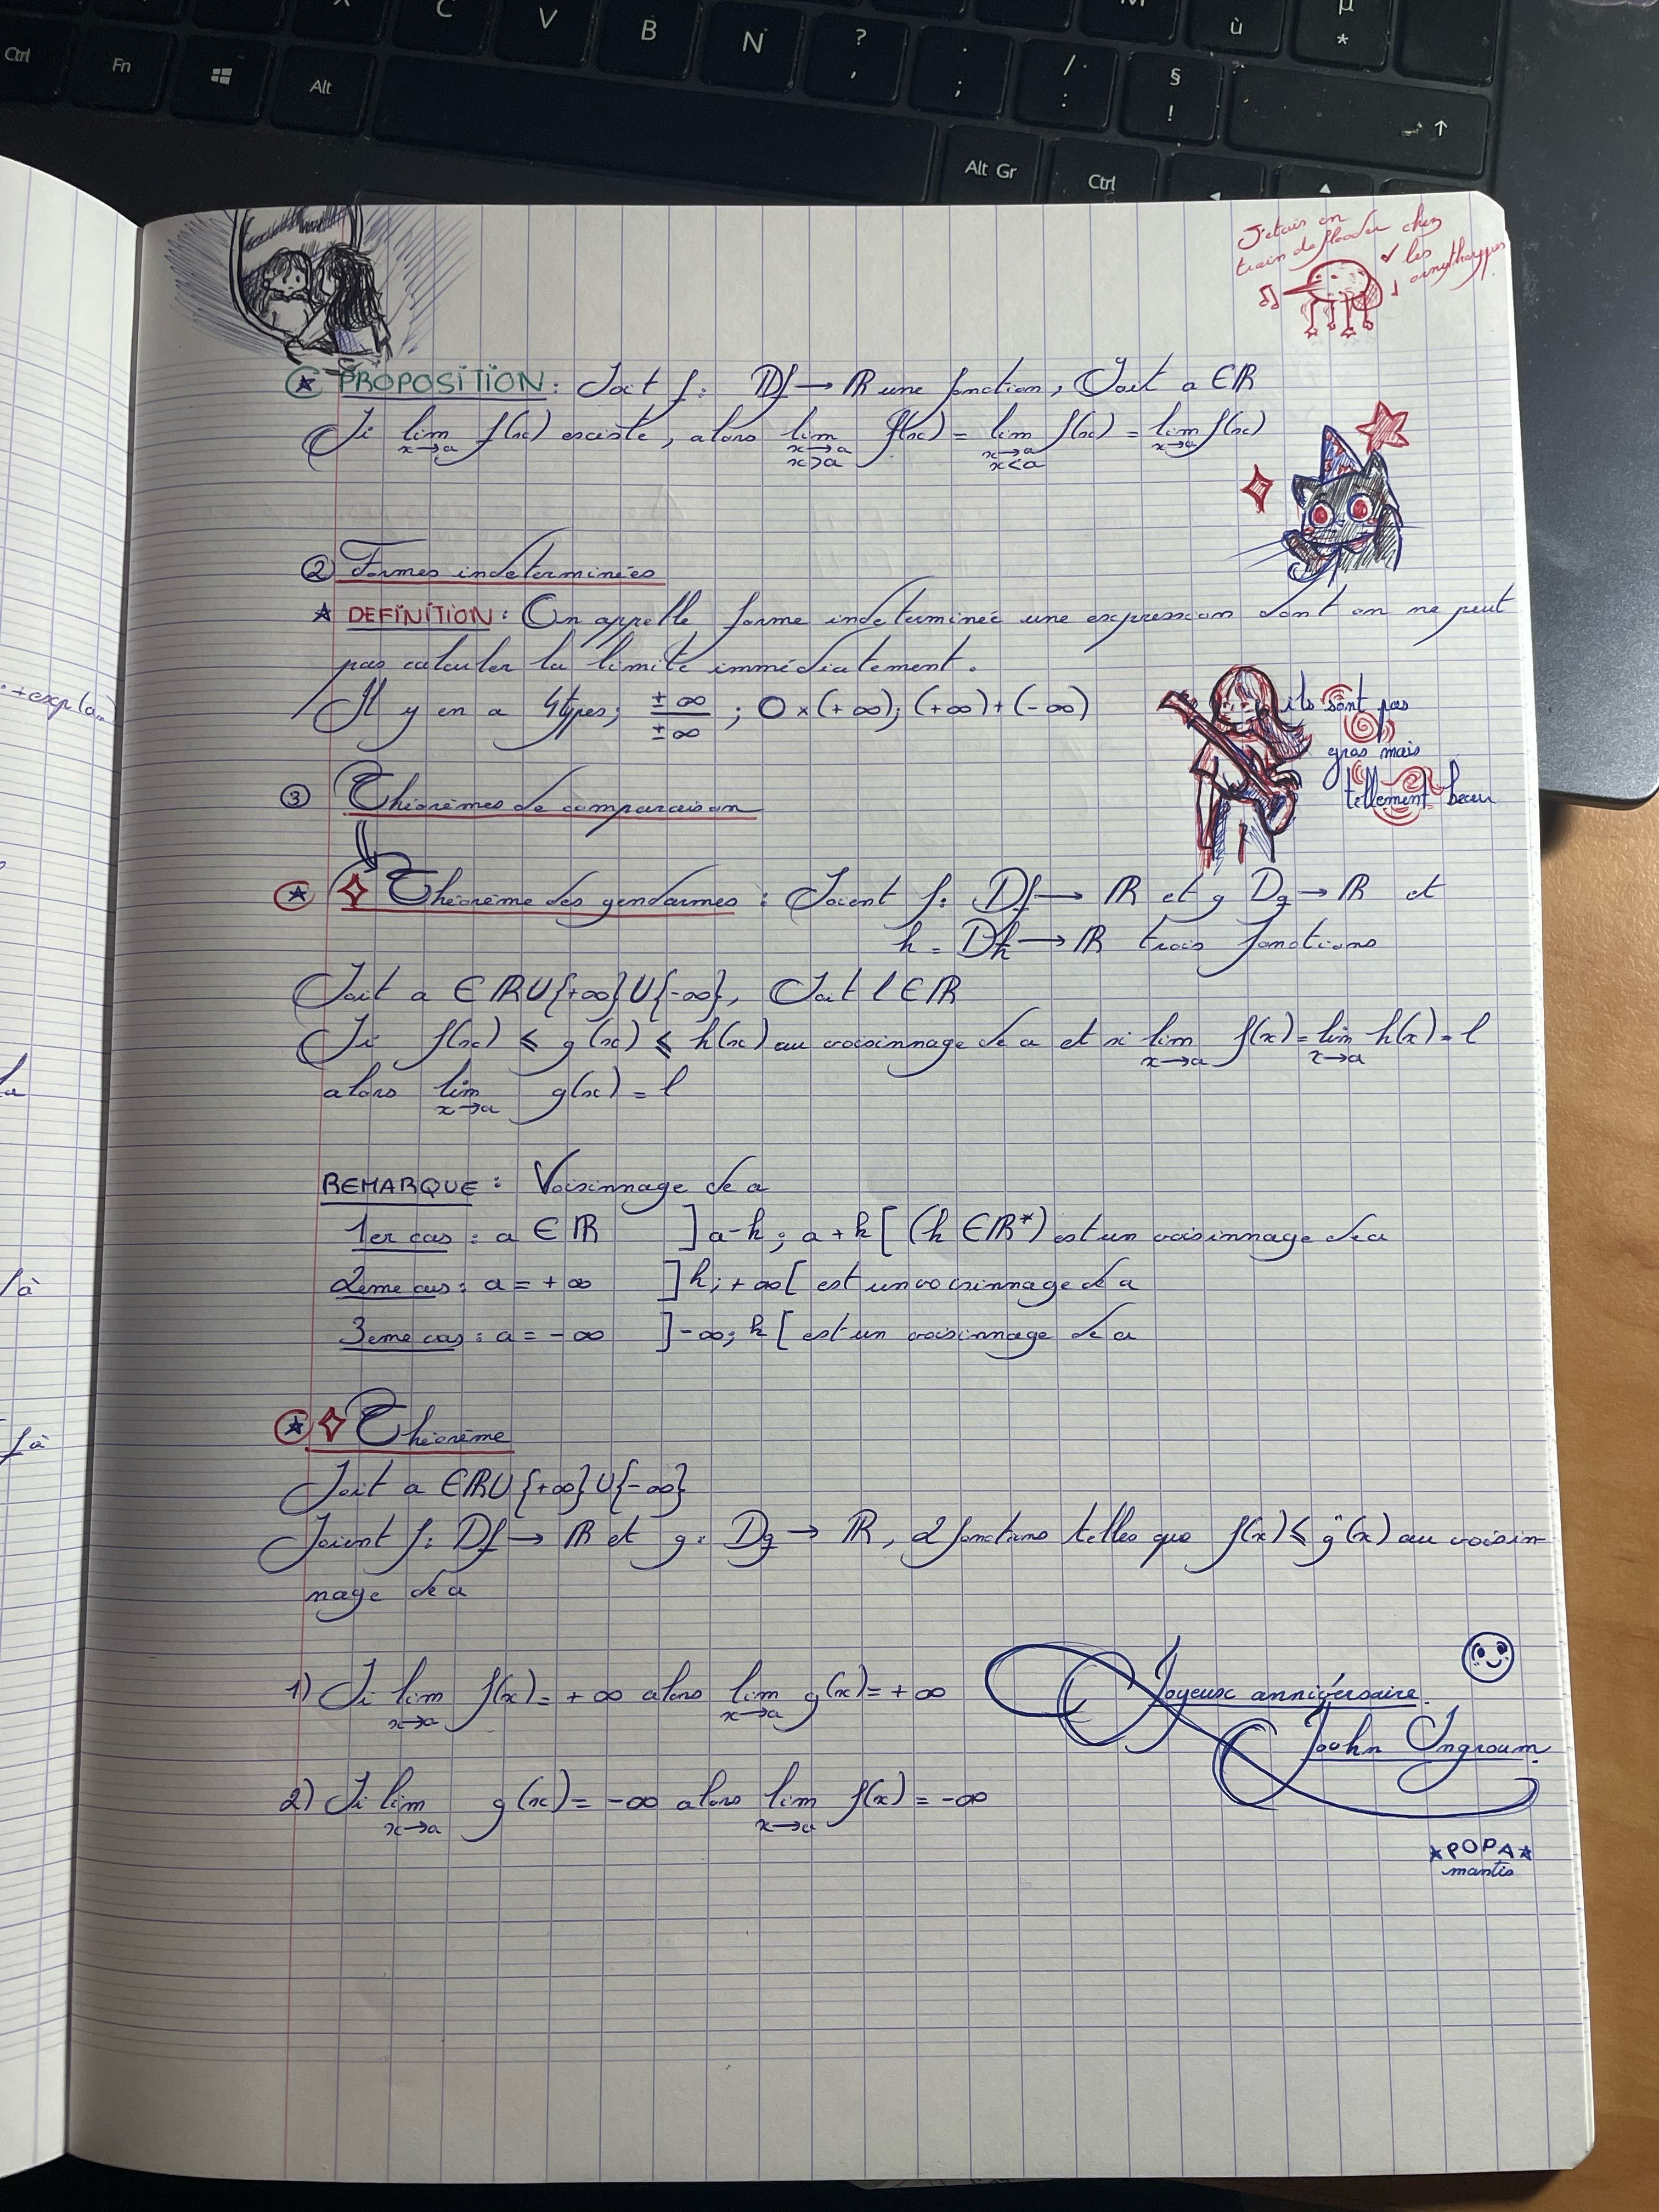 C
V
B
N
?
,
.
;
/
:
§
!
ù
µ
*
Ctrl
Fn
Alt
Alt Gr
Ctrl
J'étais en
train de flooder chez
les
PROPOSITION : Soit f : Df → ℝ une fonction, Soit a ∈ ℝ
Si lim x→a f(x) existe, alors lim x→a x>a f(x) = lim x→a x<a f(x) = lim x→a f(x)
② Formes indeterminées
★ DEFINITION : On appelle forme indeterminée une expression dont on ne peut
pas calculer la limite immédiatement.
Il y en a 4 types; ±∞/±∞ ; 0×(+∞); (+∞)+(-∞)
ils sont pas
gros mais
tellement beau
③ Théorèmes de comparaison
Théorème des gendarmes : Soient f : Df → ℝ et g Dg → ℝ et
h = Dh → ℝ trois fonctions
Soit a ∈ ℝ∪{+∞}∪{-∞}, Soit l ∈ ℝ
Si f(x) ⩽ g(x) ⩽ h(x) au voisinnage de a et si lim x→a f(x) = lim x→a h(x) = l
alors lim x→a g(x) = l
REMARQUE : Voisinnage de a
1er cas : a ∈ ℝ ]a-h ; a+h[ (h ∈ ℝ*) est un voisinnage de a
2eme cas : a = +∞ ]h ; +∞[ est un voisinnage de a
3eme cas : a = -∞ ]-∞; h[ est un voisinnage de a
Théorème
Soit a ∈ ℝ∪{+∞}∪{-∞}
Soient f : Df → ℝ et g : Dg → ℝ, 2 fonctions telles que f(x) ⩽ g(x) au voisin-
nage de a
1) Si lim x→a f(x) = +∞ alors lim x→a g(x) = +∞
Joyeux anniversaire.
Joohn Ingroum.
2) Si lim x→a g(x) = -∞ alors lim x→a f(x) = -∞
★POPA★
mantis